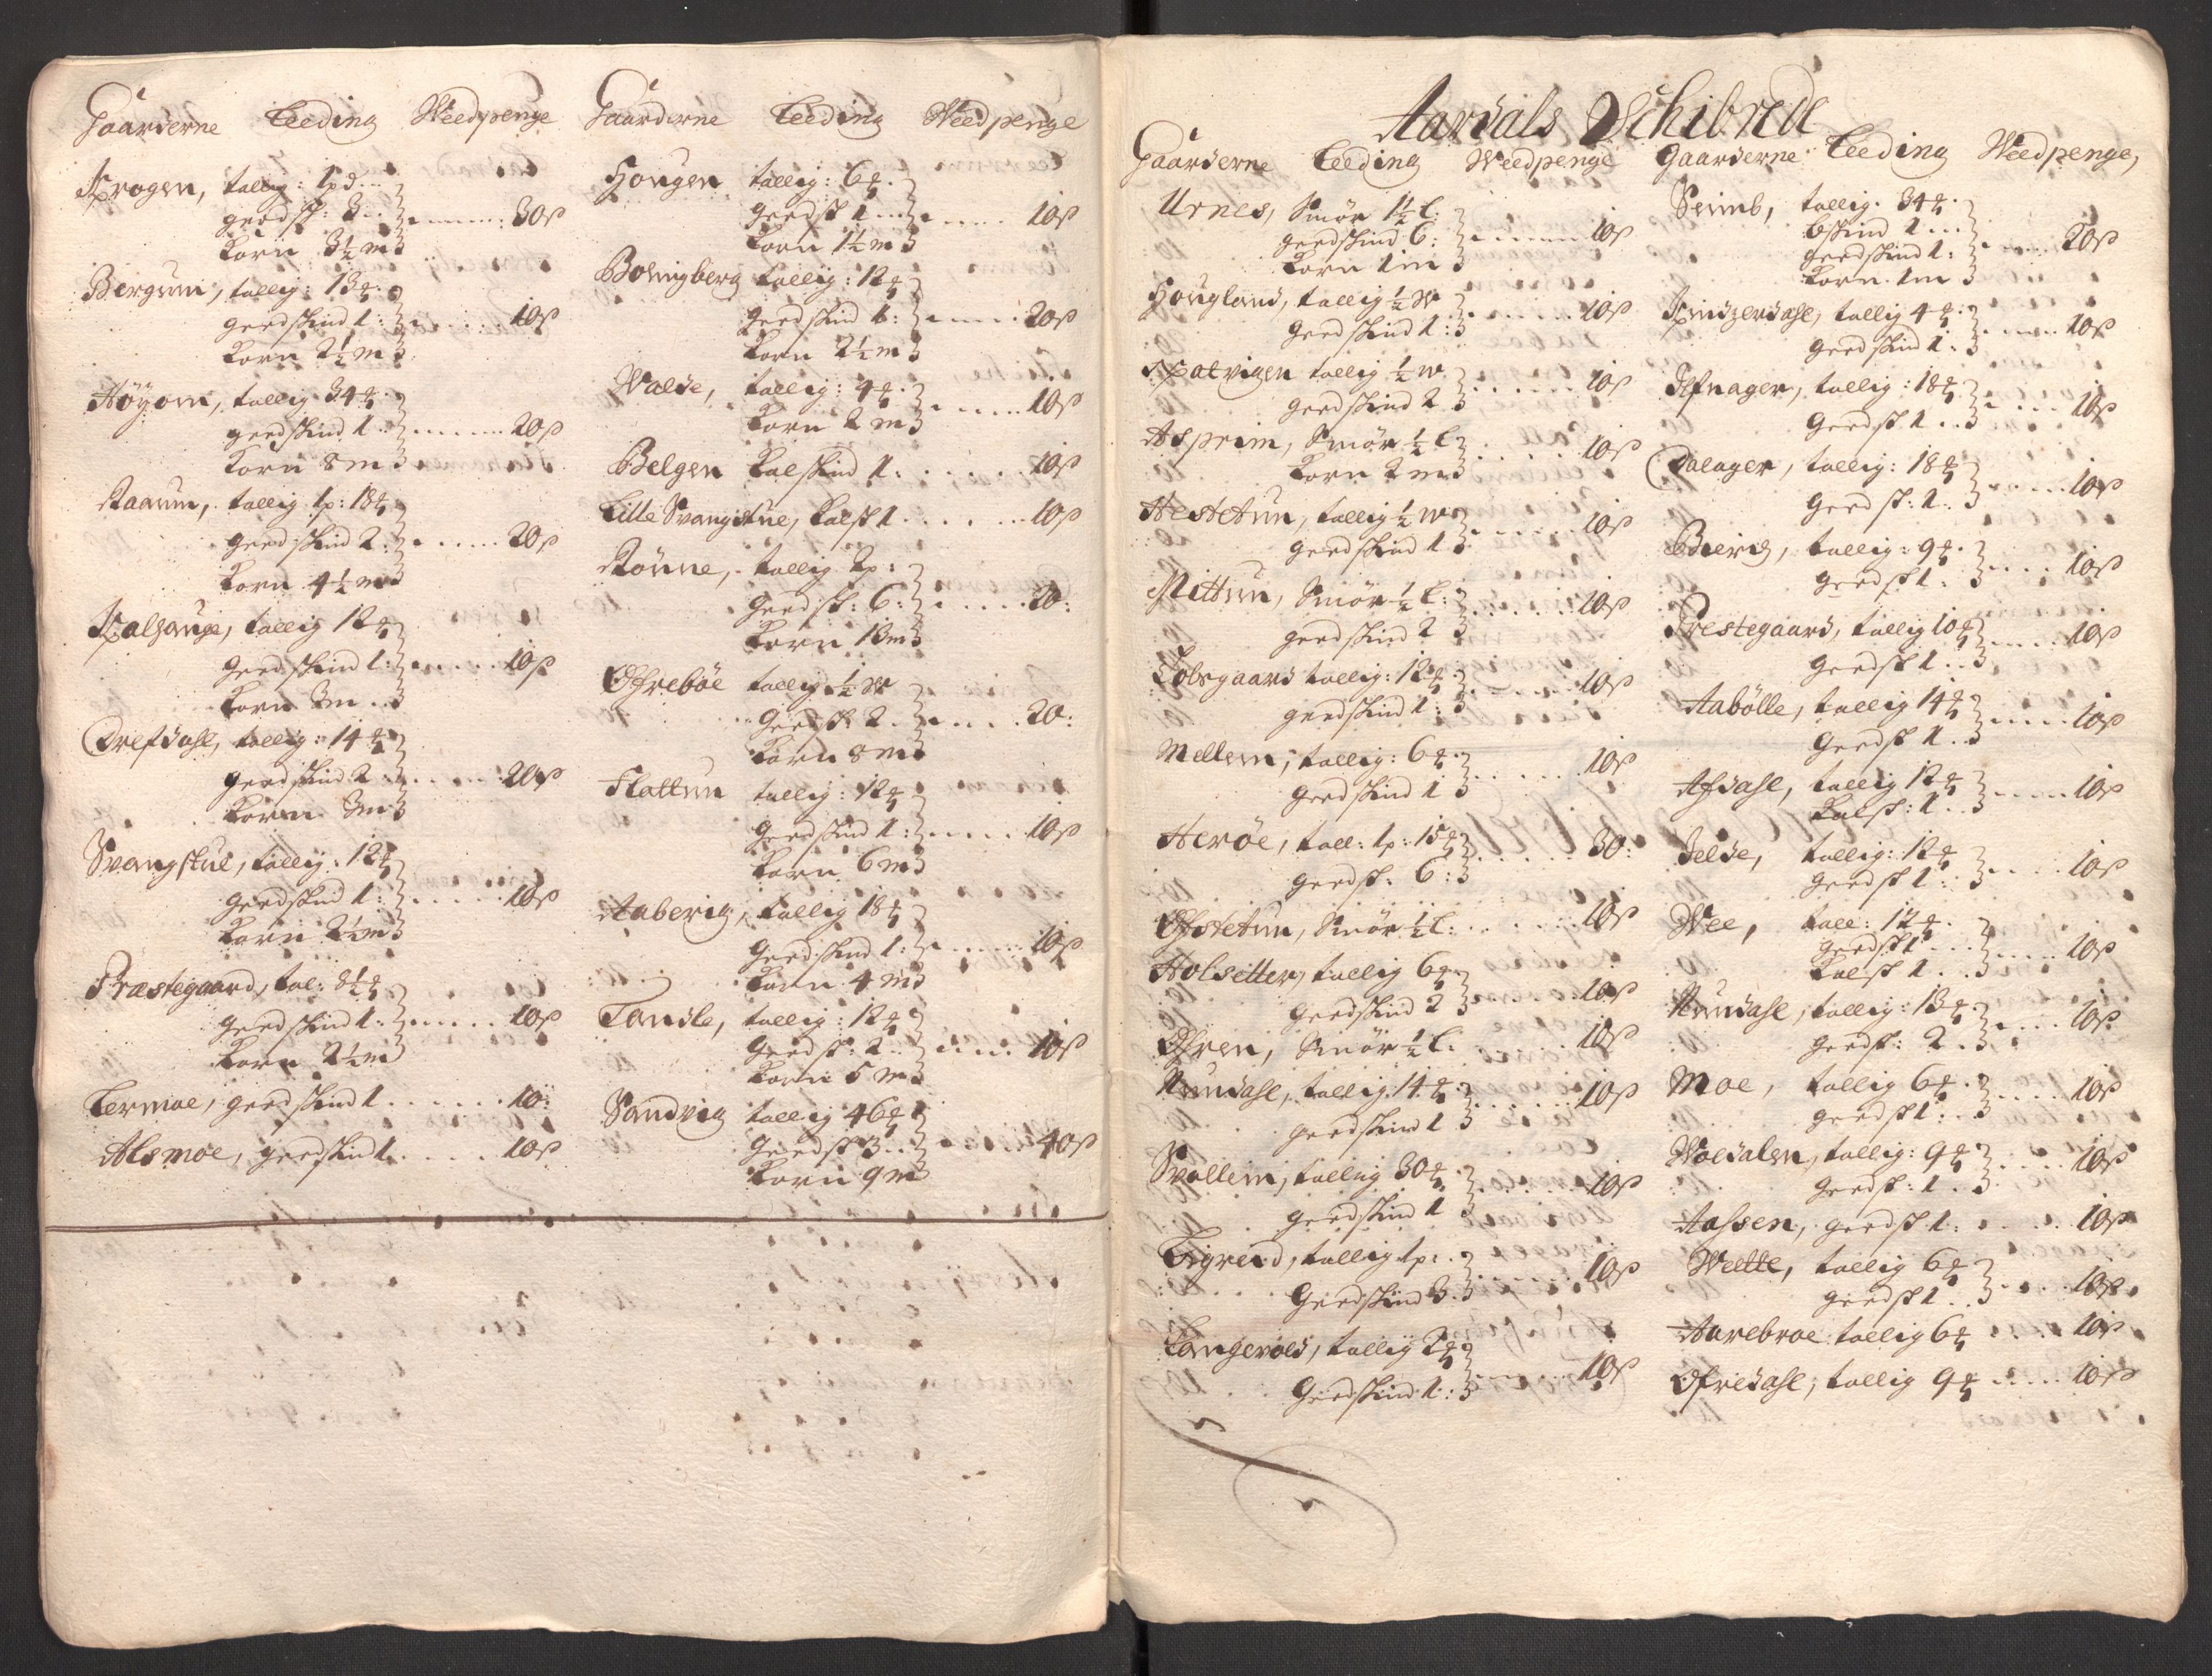 Gaarderne Leeding Weedpenge
Krogen, tallig: 1 pd
geedsk: 3 30 ß
Korn 3½ m
Bergum, tallig: 13
geedskind 1: 10 ß
Korn 2½ m
Höyom, tallig 34
geedskind 1 20 ß
Korn 8 m
Raaum, tallig 1 p: 18
geedskind 2: 20 ß
Korn 4½ m
Kalhauge, tallig 12
geedskind 1: 10 ß
Korn 3 m
Drefdahl, tallig: 14
geedskind 2 20 ß
Korn 3 m
Svangskue, tallig: 12
geedskind 1: 10 ß
Korn 2½ m
Præstegaard, tal: 8½
geedskind 1: 10 ß
Korn 2½ m
Lermoe, geedskind 1 10:
Alsmoe, geedskind 1 10 ß
Gaarderne Leeding Weedpenge
Hougen tallig: 6
geedsk 1 10 ß
Korn 1½ m
Bolvigberg tallig: 12
geedskind 1: 20 ß
Korn 2½ m
Walde, tallig: 4
Korn 2 m 10 ß
Belgen Kalskind 1: 10 ß
Lille Svangskue, Kalsk 1 10 ß
Rönne, tallig 2 p:
geedsk: 6: 20:
Korn 13 m
Ofrebøe tallig ½ W
geedsk 2 20:
Korn 8 m
Flattun tallig: 12
geedskind 1: 10 ß
Korn 6 m
Aaberig, tallig 18
geedskind 1: 10 ß
Korn 4 m
Tandle, tallig: 12
geedsk: 2 10 ß
Korn 5 m
Sandvig tallig 46
geedsk 3 40 ß
Korn 9 m
Aardals Schibrede
Gaarderne Leeding Weedpenge
Urnes, Smör 1½ l:
geedskind 6: 10 ß
Korn 1 m
Hougland, tallig ½ W 10 ß
geedskind 1:
Kroatvigen tallig ½ W 10 ß
geedskind 2
Asprim, Smör ½ l 10 ß
Korn 2 m
Hestetun, tallig ½ W 10 ß
geedskind 1
Mittun, Smör ½ l: 10 ß
geedskind 2
Tolvgaard tallig: 12 10 ß
geedskind 1:
Mellem, tallig: 6 10 ß
geedskind 1
Herøe, tall: 1 p: 15 30:
geedsk: 6:
Ofstetun, Smör ½ l: 10 ß
Holsetter, tallig 6 10 ß
geedskind 2
Ofren, Smör ½ l. 10 ß
Nundahl, tallig: 14 10 ß
geedskind 1
Svallem, tallig 30 10 ß
geedskind 1
Eigreid, tallig 1 p: 10 ß
Geedskind 3.
Langerold, tallig 2 10 ß
Geedskind 1:
Gaarderne Leeding Weedpenge,
Semb, tallig. 34
bskind 1
geedskind 1: 20 ß
Korn 1 m
Kindzerdahl, tallig 4 10 ß
geedskind 1:
Ofnager, tallig: 18 10 ß
geedsk 1
Dalager, tallig: 18 10 ß
geedsk: 1.
Bierig, tallig: 9 10 ß
geedsk 1.
Prestegaard, tallig 10 10 ß
geedsk 1
Aabölle, tallig 14 10 ß
Geedsk 1
Afdahl, tallig 12 10 ß
Kalsk: 1
Jelde, tallig: 12 10 ß
geedsk 1:
Wee, tall: 12
geedsk 1 10 ß
Kalsk 1
Nundahl, tallig: 13 10 ß
geedsk: 2
Moe, tallig 6 10 ß
geedsk 1:
Woldalen, tallig: 9 10 ß
Geedsk: 1
Aassen, geedsk 1: 10 ß
Weette, tallig 6 10 ß
geedsk 1
Aarebroe tallig 6 10 ß
Ofredahl, tallig 9 10 ß